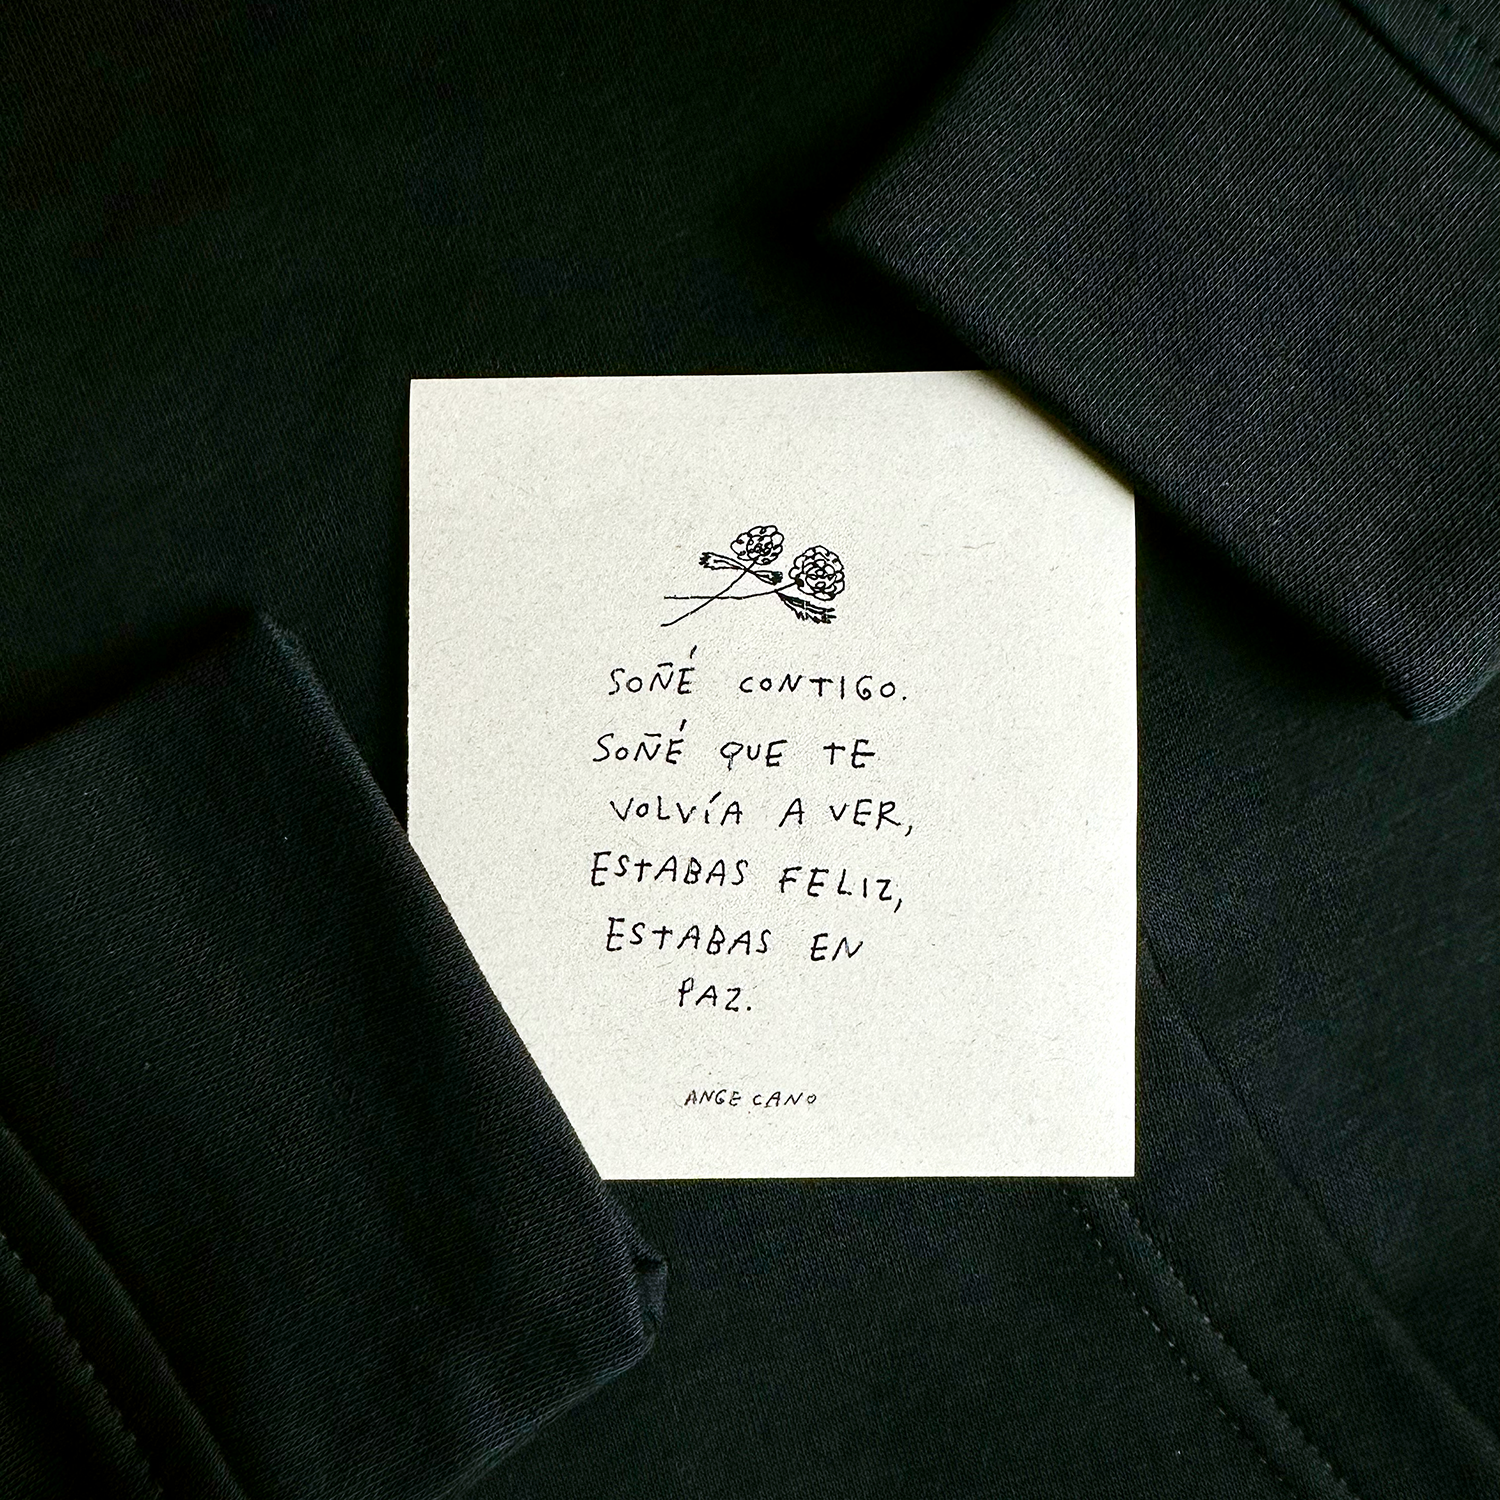 SOÑÉ CONTIGO.
SOÑÉ QUE TE
VOLVÍA A VER,
ESTABAS FELIZ,
ESTABAS EN
PAZ.
ANGE CANO